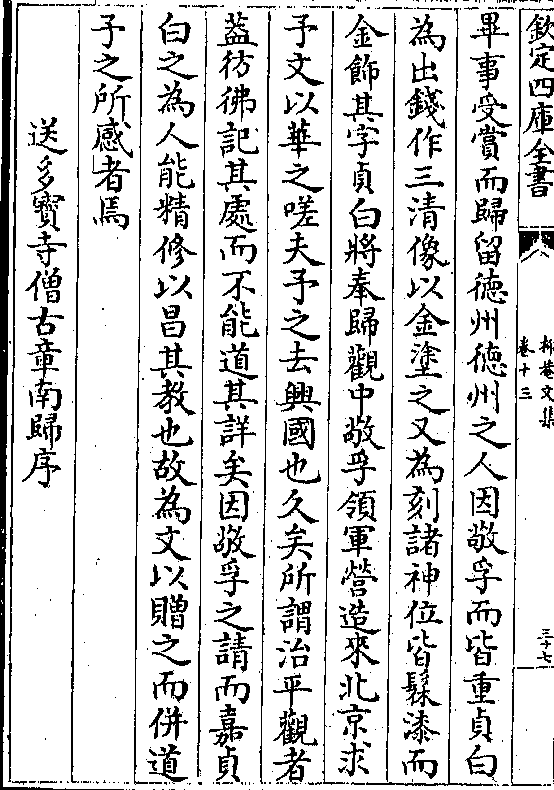 欽定四庫全書
抑菴文集
卷十三
三十七
畢事受賞而歸留徳州徳州之人因敬孚而皆重貞白
為出錢作三清像以金塗之又為刻諸神位皆髹漆而
金飾其字貞白將奉歸觀中敬孚領軍營造來北京求
予文以華之嗟夫予之去興國也久矣所謂治平觀者
葢彷彿記其處而不能道其詳矣因敬孚之請而嘉貞
白之為人能精修以昌其教也故為文以贈之而併道
予之所感者焉
送多寳寺僧古章南歸序